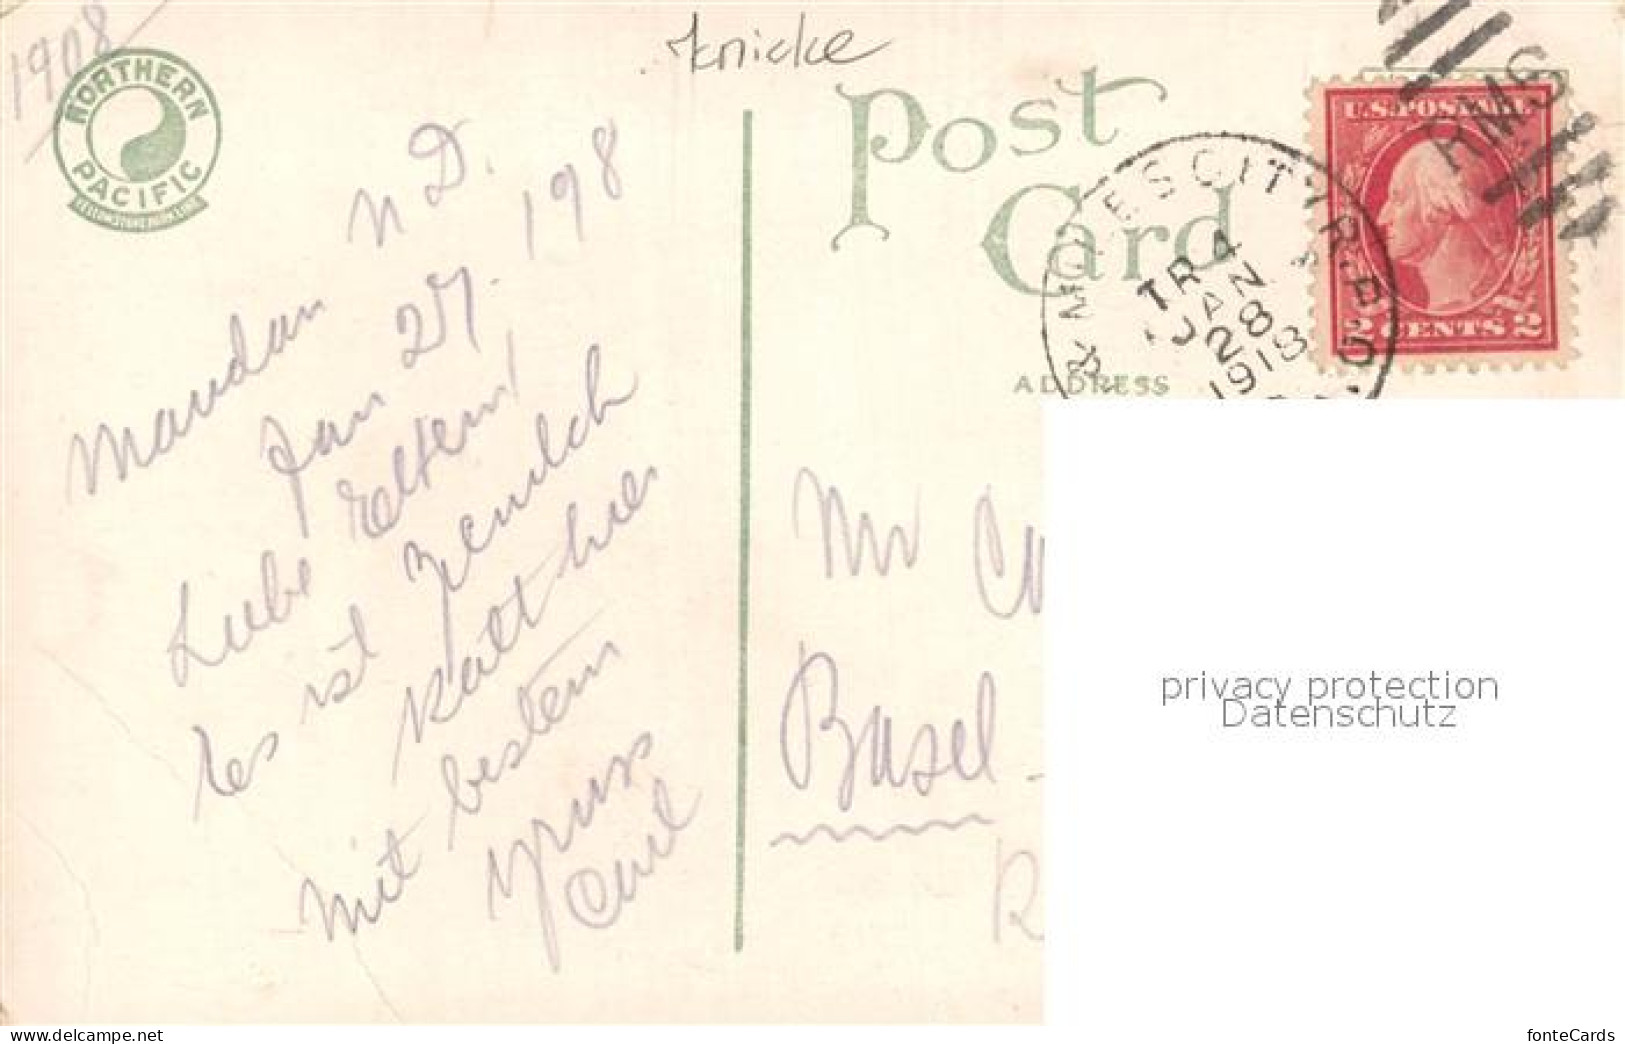 1908
NORTHERN
PACIFIC
Knicke
Post
Card
ADDRESS
U.S. POSTAGE
2 CENTS 2
RMS
& MILES CITY R.P.O.
TR 4
JAN
28
1918
Mandan N D.
Jan 27. 198
Liebe Eltern!
Es ist ziemlich
Kalt hier
mit bestem
Gruss
Carl
Mr
Basel
privacy protection
Datenschutz
www.delcampe.net
fonteCards